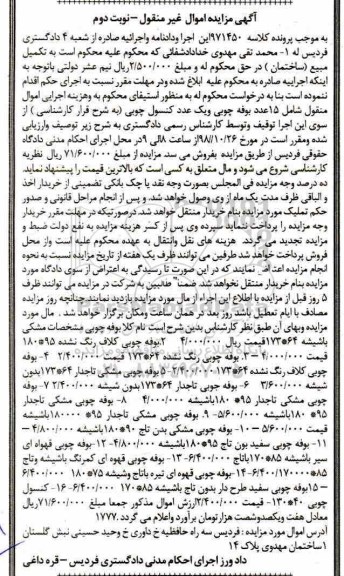 آگهی مزایده اموال غیر منقول – نوبت دوم
به موجب پرونده کلاسه ۹۷۱۴۵۰ این اجرا ودادنامه واجرائیه صادره از شعبه ۴ دادگستری
فردیس له ۱- محمد تقی مهدوی خدادادشقائی که محکوم علیه محکوم است به تکمیل
مبیع (ساختمان ) در حق محکوم له و مبلغ ۲/۵۰۰/۰۰۰ریال نیم عشر دولتی باتوجه به
اینکه اجراییه صادره به محکوم علیه ابلاغ شده ودر مهلت مقرر نسبت به اجرای حکم اقدام
ننموده است بنا به درخواست محکوم له به منظور استیفای محکوم به وهزینه اجرایی اموال
منقول شامل ۱۵عدد بوفه چوبی ویک عدد کنسول چوبی (به شرح قرار کارشناسی ) از
سوی این اجرا توقیف وتوسط کارشناس رسمی دادگستری به شرح زیر توصیف وارزیابی
شده ومقرر است در مورخ ۹۸/۱۰/۲۶از ساعت ۸الی ۹در محل اجرای احکام مدنی دادگاه
حقوقی فردیس از طریق مزایده بفروش می رسد. مزایده از مبلغ ۷۱/۶۰۰/۰۰۰ ریال نظریه
کارشناسی شروع می شود و مال متعلق به کسی است که بالاترین قیمت را پیشنهاد نماید.
ده درصد وجه مزایده فی المجلس بصورت وجه نقد یا چک بانکی تضمینی از خریدار اخذ
و الباقی ظرف مدت یک ماه از وی وصول خواهد شد. و پس از انجام مراحل قانونی و صدور
حکم تملیک مورد مزایده بنام خریدار منتقل خواهد شد. درصورتیکه در مهلت مقرر خریدار
وجه مزایده را پرداخت ننماید سپرده وی پس از کسر هزینه مزایده به نفع دولت ضبط و
مزایده تجدید می گردد. هزینه های نقل وانتقال به عهده محکوم علیه است واز محل
فروش پرداخت خواهد شد طرفین می توانند ظرف یک هفته از تاریخ مزایده نسبت به نحوه
انجام مزایده اعتراض نمایند که در این صورت تا رسیدگی به اعتراض از سوی دادگاه مورد
مزایده بنام خریدار منتقل نخواهد شد. ضمنا" طالبین به شرکت در مزایده می توانند ظرف
۵ روز قبل از مزایده با اطلاع این اجرا، از مال مورد مزایده بازدید نمایند.چنانچه روز مزایده
مصادف با ایام تعطیل باشد روز بعد در همان ساعت ومکان برگزار خواهد شد . مال مورد
مزایده وبهای آن طبق نظر کارشناس بدین شرح است نام کلا بوفه چوبی مشخصات مشکی
باشیشه ۶۴*۱۷۳قیمت ریال ۴/۰۰۰/۰۰۰ ۲- بوفه چوبی رنگ نشده ۹۵*۱۸۰
قیمت ۴/۰۰۰/۰۰۰ – ۳- بوفه چوبی رنگ نشده ۶۴*۱۷۳ قیمت ۲/۴۰۰/۰۰۰ ۴- بوفه
چوبی کلاف رنگ نشده ۶۴*۱۷۳ ۲/۴۰۰/۰۰۰-۵ بوفه چوبی مشکی تاجدار ۶۴*۱۷۳بدون
شیشه ۳/۶۰۰/۰۰۰ ۶- بوفه چوبی تاجدار ۶۴*۱۷۳بدون شیشه ۲/۴۰۰/۰۰۰ ۷- بوفه
چوبی مشکی تاجدار ۹۵ *۱۸۰باشیشه ۴/۰۰۰/۰۰۰ ۸- بوفه چوبی مشکی تاجدار
۹۵ *۱۸۰باشیشه ۵/۶۰۰/۰۰۰- ۹. بوفه چوبی مشکی تاجدار ۹۵* ۱۸۰باشیشه
قیمت ۵/۶۰۰/۰۰۰ – ۱۰- بوفه چوبی مشکی بدن تاج ۹۰*۱۸۰ باشیشه ۴/۸۰۰/۰۰۰ –
۱۱- بوفه چوبی سفید بون تاج ۹۵*۱۸۰باشیشه ۴/۸۰۰/۰۰۰ ۱۲- بوفه چوبی قهوه ای
سیر باشیشه ۸۵*۱۷۰باتاج ۶/۴۰۰/۰۰۰ ۱۳- بوفه چوبی قهوه ای کمرنگ باشیشه وتاج
۸۵*۱۷۰ ۶/۴۰۰/۰۰۰-۱۴ بوفه چوبی قهوه ای تیره باتاج وشیشه ۷۵*۱۸۰ ۶/۴۰۰/۰۰۰
– ۱۵بوفه چوبی سفید طرح دار بدون تاج باشیشه ۸۵*۱۷۰ ۶/۴۰۰/۰۰۰ ۱۶- کنسول
چوبی ۴۰*۱۳۰- قیمت ۲/۴۰۰/۰۰۰ارزش اموال مذکور جمعا مبلغ ۷۱/۶۰۰/۰۰۰ریال
معادل هفت ویکصدوشصت هزار تومان برآورد واعلام می گردد .۱۷۷۷
آدرس اموال مورد مزایده : فردیس سه راه حافظیه خ داوری خ وحید حسینی نبش گلستان
۱ساختمان مهدوی پلاک ۱۴
داد ورز اجرای احکام مدنی دادگستری فردیس – قره داغی